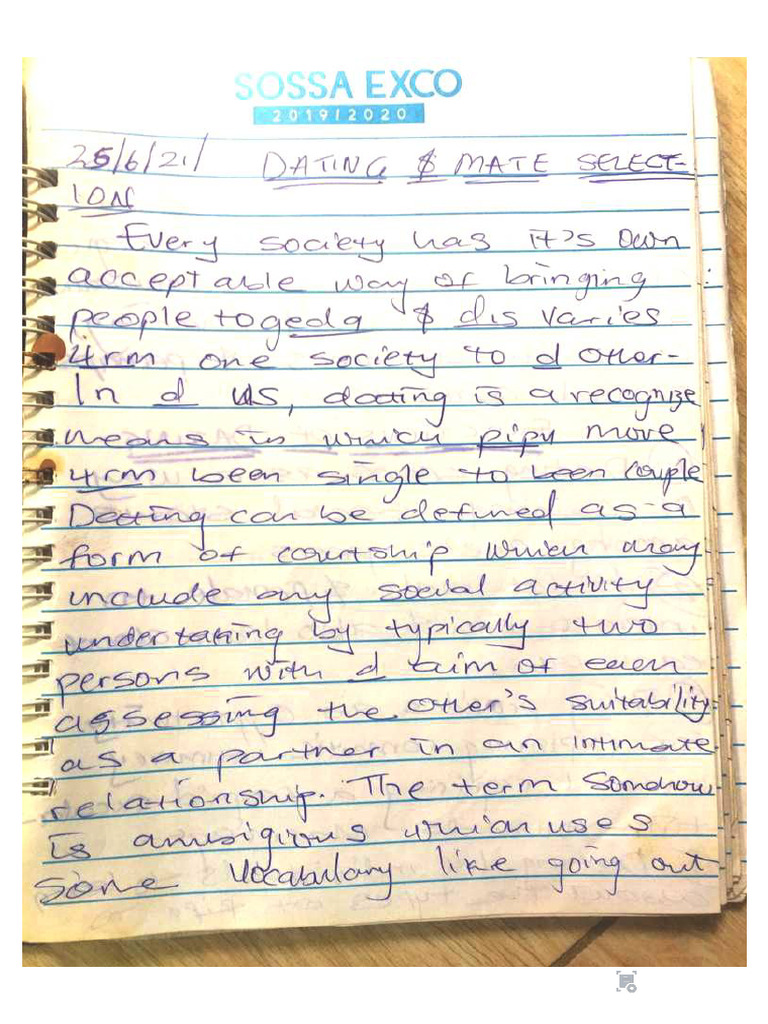 SOSSA EXCO
2019/2020
25/6/21/ DATING & MATE SELECT-
ION
Every society has it's own
acceptable way of bringing
people togeda & dis varies
4rm one society to d otter-
In d US, dating is a recognize
means in which pipu move
4rm been single to been couple
Dating can be defined as a
form of courtship which may
include any social activity
undertaking by typically two
persons with d aim of each
assessing the otter's suitability
as a partner in an intimate
relationship. The term somehow
is ambigious which uses
some vocabulary like going out